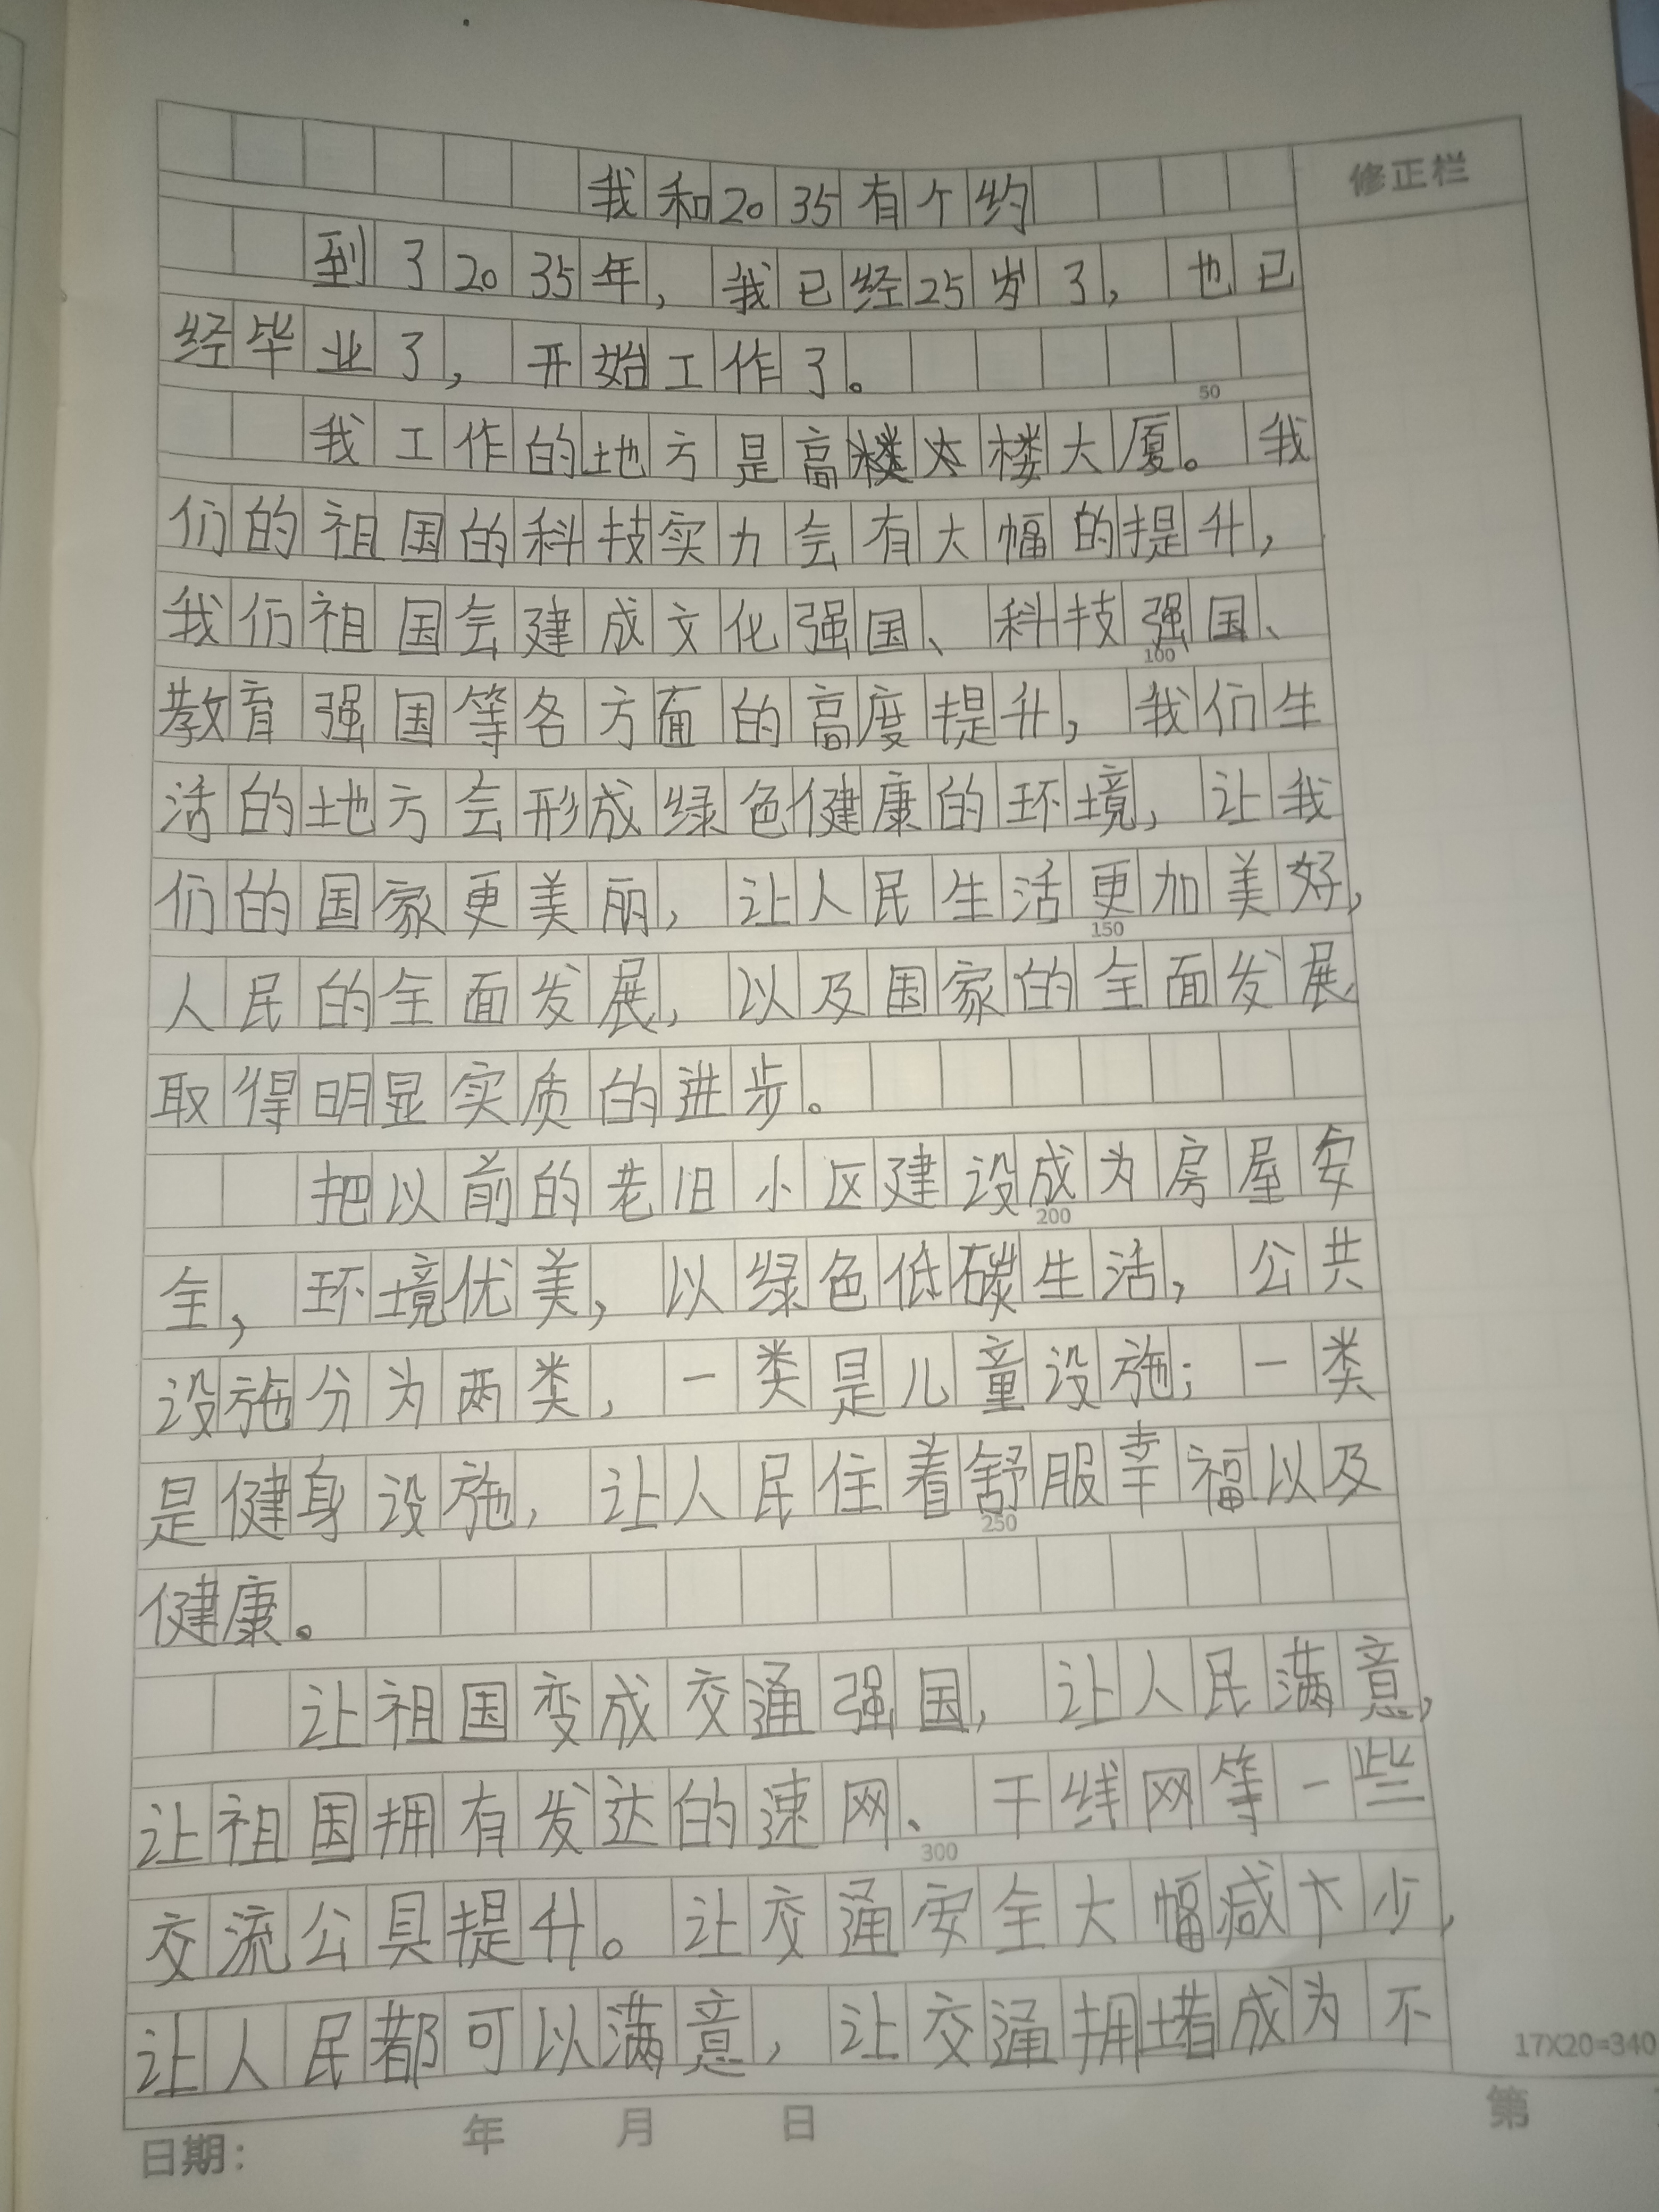 我和2035有个约
修正栏
到了2035年，我已经25岁了，也已
经毕业了，开始工作了。
50
我工作的地方是高楼大厦。我
们的祖国的科技实力会有大幅的提升，
我们祖国会建成文化强国、科技强国、
100
教育强国等各方面的高度提升，我们生
活的地方会形成绿色健康的环境，让我
们的国家更美丽，让人民生活更加美好，
150
人民的全面发展，以及国家的全面发展，
取得明显实质的进步。
把以前的老旧小区建设成为房屋安
200
全，环境优美，以绿色低碳生活，公共
设施分为两类，一类是儿童设施；一类
是健身设施，让人民住着舒服幸福以及
250
健康。
让祖国变成交通强国，让人民满意，
让祖国拥有发达的速网、干线网等一些
300
交流公具提升。让交通安全大幅减下少，
让人民都可以满意，让交通拥堵成为不
17X20=340
日期： 年 月 日
第